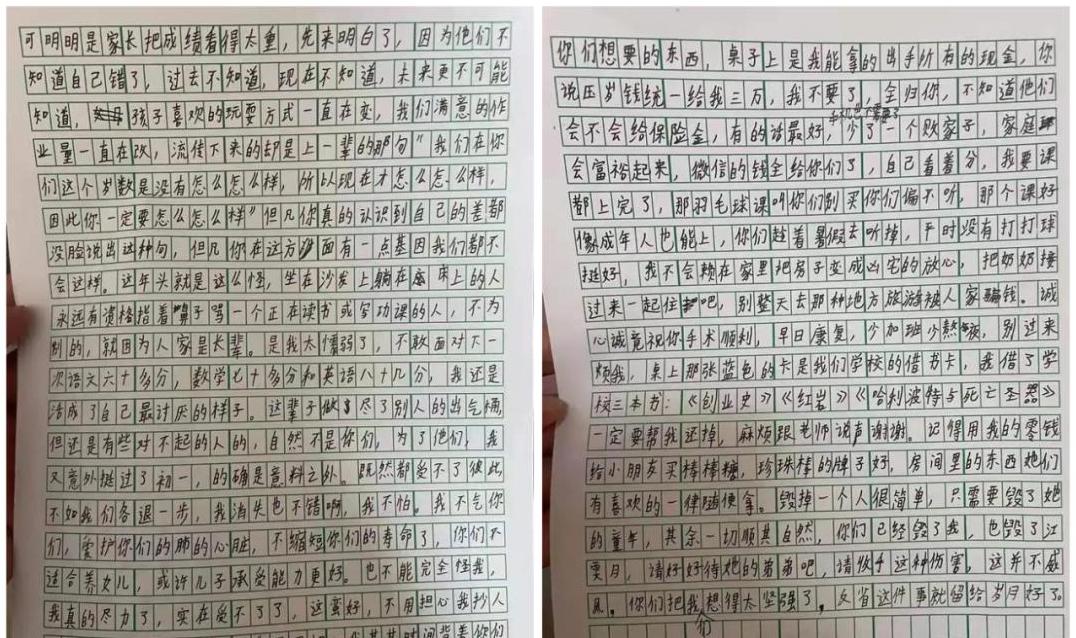 可明明是家长把成绩看得太重，先来明白了，因为他们不
知道自己错了，过去不知道，现在不知道，未来更不可能
知道，孩子喜欢的玩耍方式一直在变，我们满意的作
业量一直在改，流传下来的却是上一辈的那句“我们在你
们这个岁数是没有怎么怎么样，所以现在才怎么怎么样，
因此你一定要怎么怎么样”但凡你真的认识到自己的差都
没脸说出这种句，但凡你在这方面有一点基因我们都不
会这样。这年头就是这么怪，坐在沙发上躺在床上的人
永远有资格指着鼻子骂一个正在读书或写功课的人，不为
别的，就因为人家是长辈。是我太懦弱了，不敢面对下一
次语文六十多分，数学七十多分和英语八十几分，我还是
活成了自己最讨厌的样子。这辈子做尽了别人的出气桶，
但还是有些对不起的人的，自然不是你们，为了他们，我
又意外挺过了初一，的确是意料之外。既然都受不了彼此，
不如我们各退一步，我消失也不错啊，我不怕。我不气你
们，爱护你们的肺的心脏，不缩短你们的寿命了，你们不
适合养女儿，或许儿子承受能力更好。也不能完全怪我，
我真的尽力了，实在受不了了，这蛮好，不用担心我抄人
你们想要的东西，桌子上是我能拿的出手所有的现金，你
说压岁钱统一给我三万，我不要了，全归你，不知道他们
手机也不需要了
会不会给保险金，有的话最好，少了一个败家子，家庭
会富裕起来，微信的钱全给你们了，自己看着分，我要课
都上完了，那羽毛球课叫你们别买你们偏不听，那个课好
像成年人也能上，你们趁着暑假去听掉，平时没有打打球
挺好，我不会赖在家里把房子变成凶宅的放心，把奶奶接
过来一起住吧，别整天去那种地方旅游被人家骗钱。诚
心诚意祝你手术顺利，早日康复，少加班少熬夜，别过来
烦我，桌上那张蓝色的卡是我们学校的借书卡，我借了学
校三本书：《创业史》《红岩》《哈利波特与死亡圣器》
一定要帮我还掉，麻烦跟老师说声谢谢。记得用我的零钱
给小朋友买棒棒糖，珍珠棒的牌子好，房间里的东西她们
有喜欢的一律随便拿。毁掉一个人很简单，只需要毁了她
的童年，其余一切顺其自然，你们已经毁了我，也毁了江
要月，请好好待她的弟弟吧，请收手这种伤害，这并不威
风。你们把我想得太坚强了，反省这件事就留给岁月好了。
们